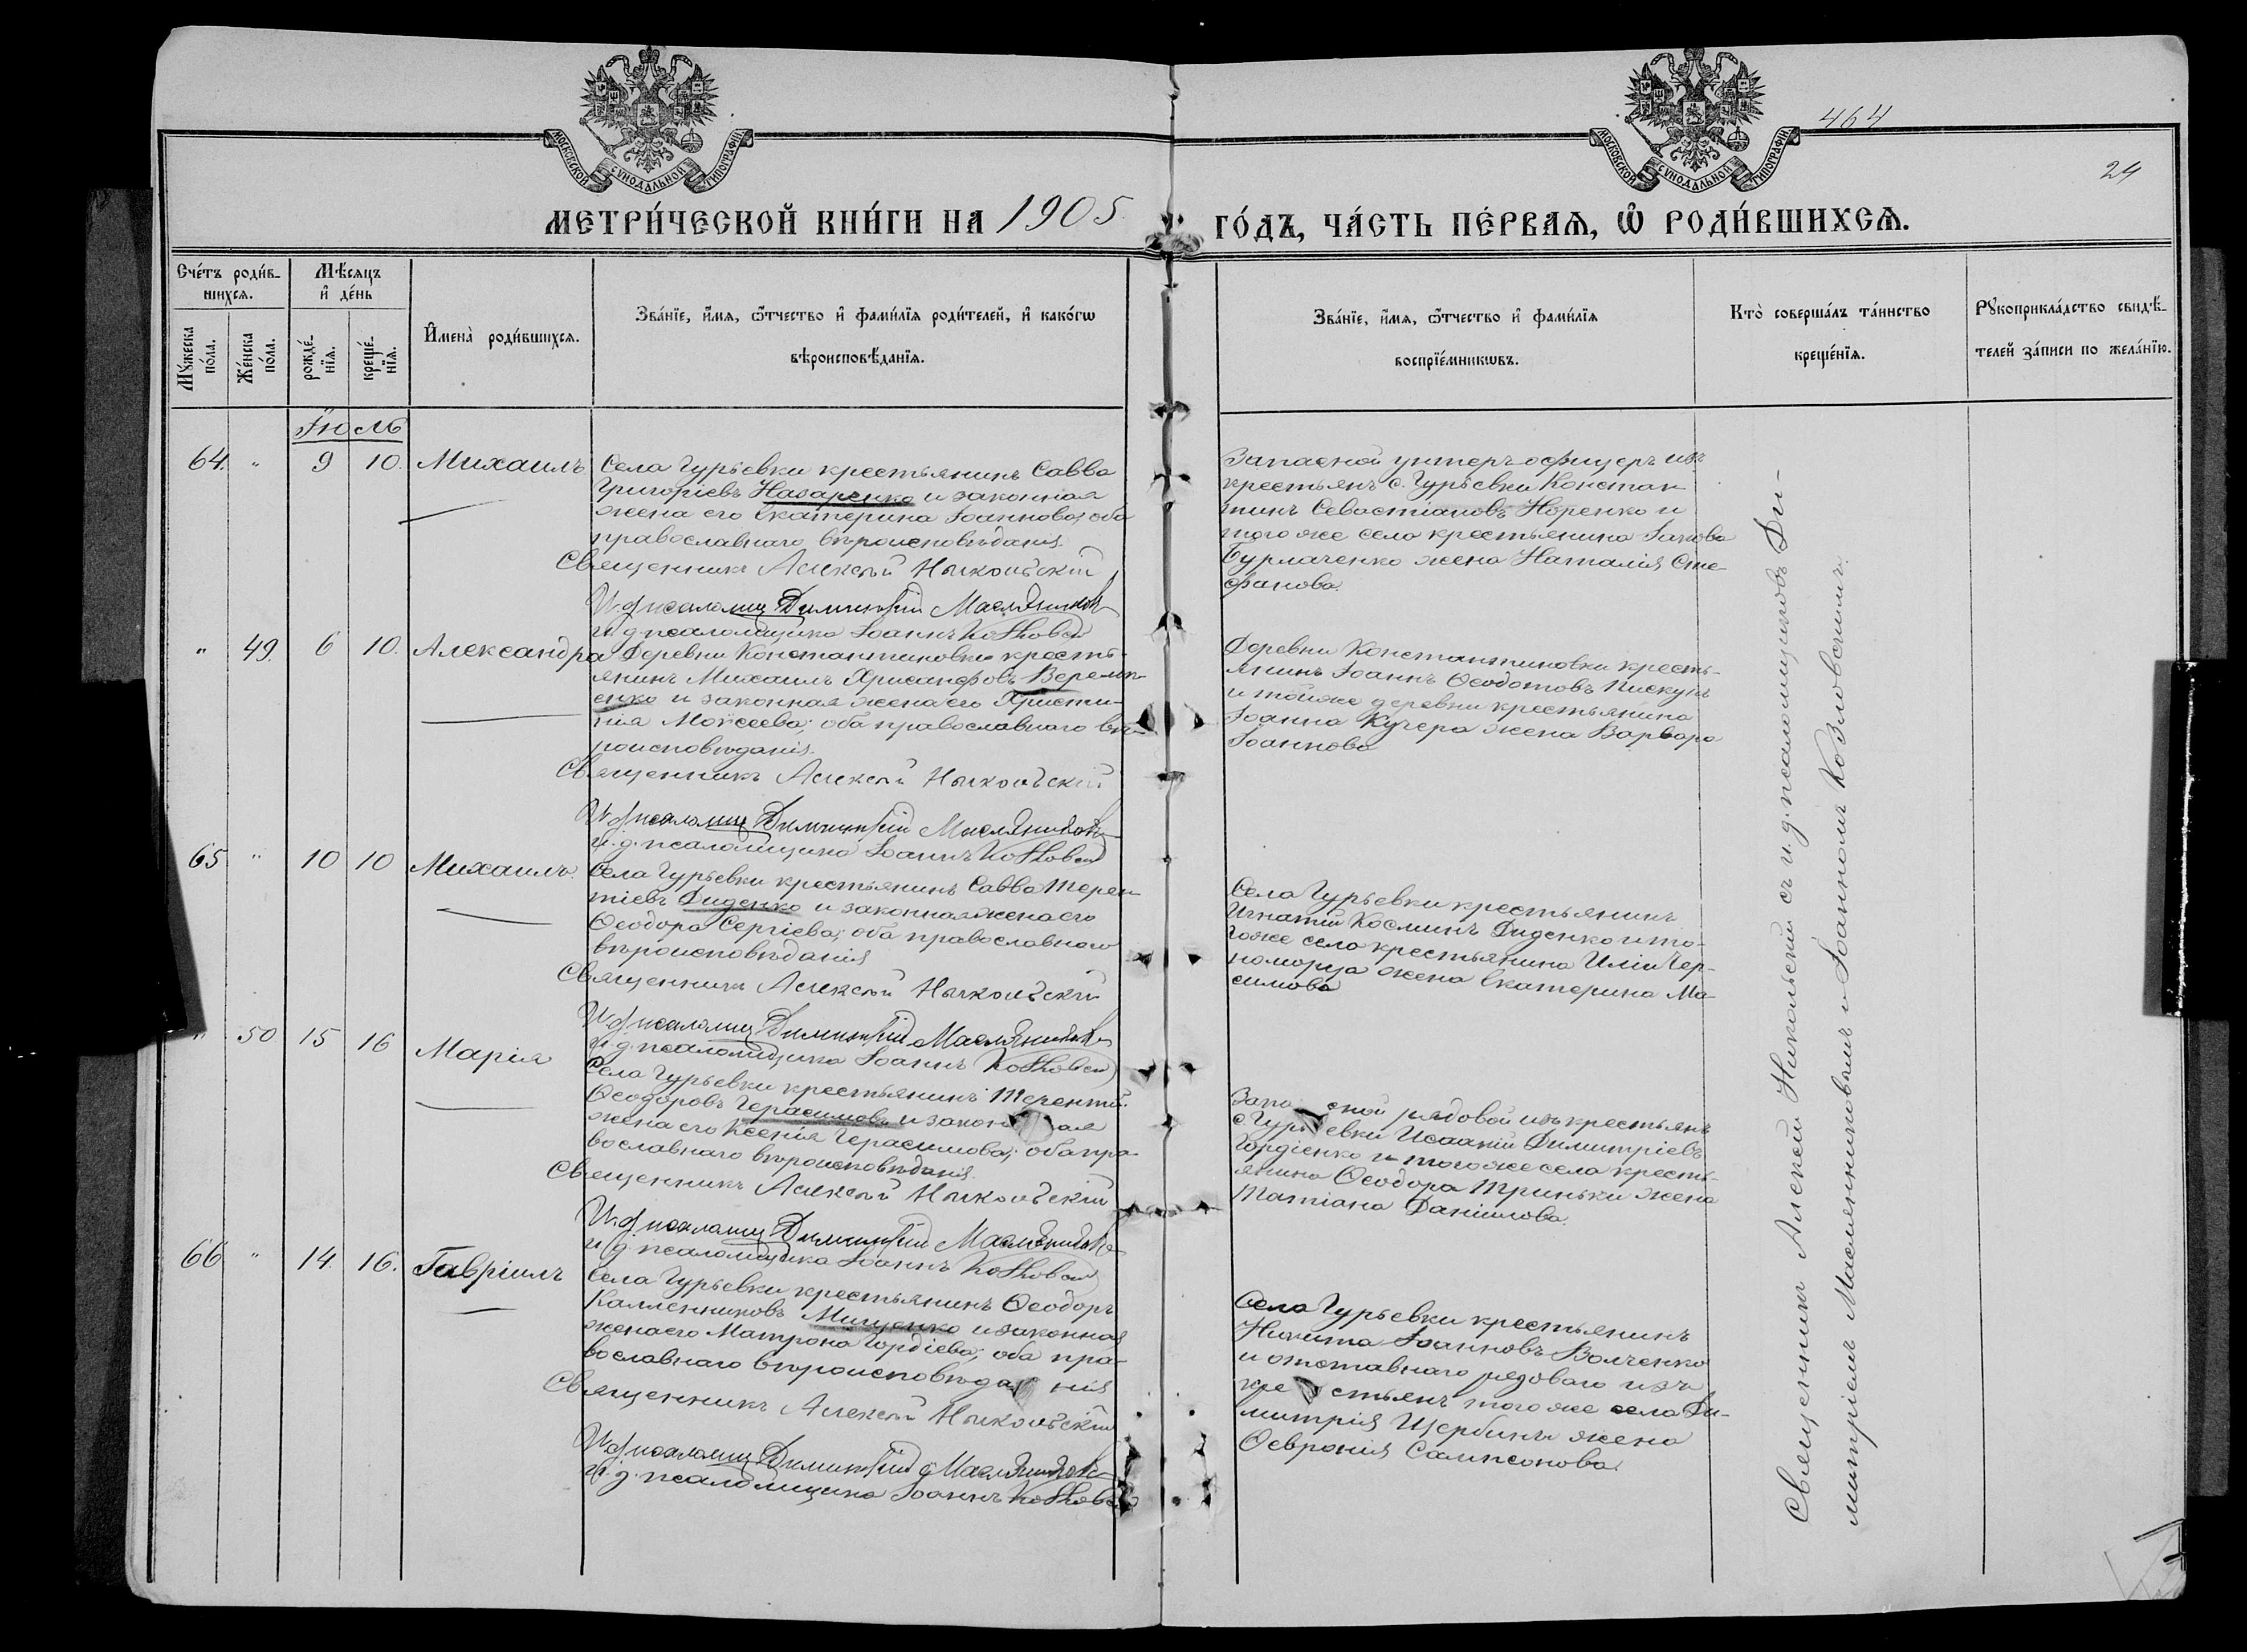 МОСКОВСКОЙ СѴНОДАЛЬНОЙ ТИПОГРАФІИ
МОСКОВСКОЙ СѴНОДАЛЬНОЙ ТИПОГРАФІИ
464
24
МЕТРИ́ЧЕСКОЙ КНИ́ГИ НА 1905 ГО́ДЪ, ЧА́СТЬ ПЕ́РВАѦ, Ѡ҆ РОДИ́ВШИХСѦ.
Сче́тъ роди́в-
шихсѧ.
Мꙋ́жеска по́ла.
Же́нска по́ла.
Мѣ́сѧцъ
и҆ де́нь
рожде́-
нїѧ.
креще́-
нїѧ.
И҆мена̀ роди́вшихсѧ.
Зва́нїе, и҆́мѧ, ѻ҆́тчество и҆ фами́лїѧ роди́телей, и҆ како́гѡ
вѣроисповѣ́данїѧ.
Зва́нїе, и҆́мѧ, ѻ҆́тчество и҆ фами́лїѧ
воспрїе́мникѡвъ.
Кто̀ соверша́лъ та́инство
креще́нїѧ.
Рꙋкоприкла́дство свидѣ́-
телей за́писи по жела́нїю.
Іюль
64. " 9 10. Михаилъ
Села Гурьевки крестьянинъ Савва
Григоріевъ Назаренко и законная
жена его Екатерина Іоаннова; оба
православнаго вѣроисповѣданія.
Священникъ Алексѣй Никольскій
И. д. псаломщ. Димитрій Масленниковъ
и. д. псаломщика Іоаннъ Козловскій
Запасной унтеръ-офицеръ изъ
крестьянъ с. Гурьевки Констан-
тинъ Севастіановъ Норенко и
того же села крестьянина Іакова
Бурлаченко жена Наталія Сте-
фанова.
" 49. 6 10. Александра
Деревни Константиновки кресть-
янинъ Михаилъ Хрисанфовъ Веремѣ-
енко и законная жена его Христи-
нія Моѵсеева; оба православнаго вѣ-
роисповѣданія.
Священникъ Алексѣй Никольскій
И. д. псаломщ. Димитрій Масленниковъ
и. д. псаломщика Іоаннъ Козловскій
Деревни Константиновки кресть-
янинъ Іоаннъ Ѳеодотовъ Пискунъ
и тойже деревни крестьянина
Іоанна Кучера жена Варвара
Іоаннова
65 " 10 10 Михаилъ
Села Гурьевки крестьянинъ Савва Терен-
тіевъ Диденко и законная жена его
Ѳеодора Сергіева; оба православнаго
вѣроисповѣданія
Священникъ Алексѣй Никольскій
И. д. псаломщ. Димитрій Масленниковъ
и. д. псаломщика Іоаннъ Козловскій
Села Гурьевки крестьянинъ
Игнатій Косминъ Диденко и то-
гоже села крестьянина Иліи Чер-
номорца жена Екатерина Ма-
симова
" 50 15 16 Марія
Села Гурьевки крестьянинъ Терентій
Ѳеодоровъ Герасимовъ и законная
жена его Ксенія Герасимова; оба пра-
вославнаго вѣроисповѣданія.
Священникъ Алексѣй Никольскій
И. д. псаломщ. Димитрій Масленниковъ
и. д. псаломщика Іоаннъ Козловскій
Запасной рядовой изъ крестьянъ
с. Гурьевки Исаакій Димитріевъ
Гордіенко и того же села кресть-
янина Ѳеодора Триньки жена
Татіана Даніилова.
66 " 14. 16. Гавріилъ
Села Гурьевки крестьянинъ Ѳеодоръ
Каллениковъ Мищенко и законная
жена его Матрона Гордіева; оба пра-
вославнаго вѣроисповѣданія
Священникъ Алексѣй Никольскій
И. д. псаломщ. Димитрій Масленниковъ
и. д. псаломщика Іоаннъ Козловскій
Села Гурьевки крестьянинъ
Никита Іоанновъ Волченко
и отставнаго рядоваго изъ
крестьянъ того же села Ди-
митрія Щербины жена
Ѳевронія Сампсонова.
Священникъ Алексѣй Никольскій съ и. д. псаломщиковъ Ди-
митріемъ Масленниковымъ и Іоанномъ Козловскимъ.